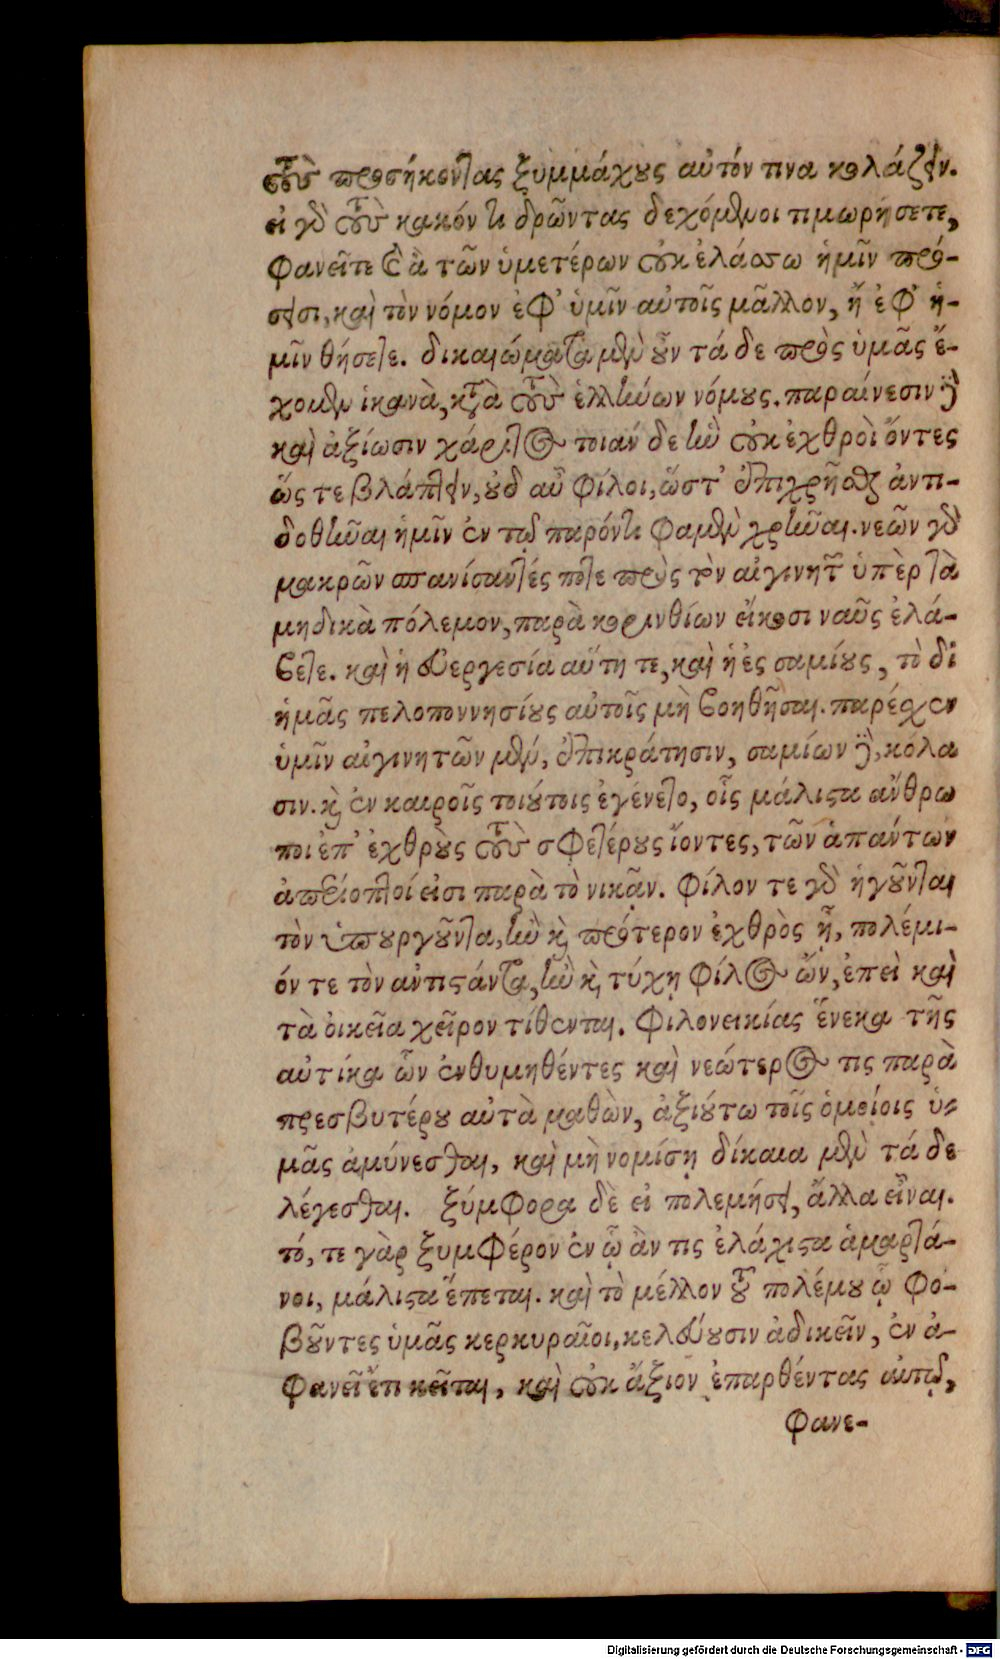 τοὺς προσήκοντας ξυμμάχους αὐτόν τινα κολάζειν.
εἰ γὰρ τοὺς κακόν τι δρῶντας δεχόμενοι τιμωρήσετε,
φανεῖτε ϗ ἃ τῶν ὑμετέρων οὐκ ἐλάσσω ἡμῖν πρό-
σεισι, καὶ τὸν νόμον ἐφ' ὑμῖν αὐτοῖς μᾶλλον, ἢ ἐφ' ἡ-
μῖν θήσετε. δικαιώματα μὲν οὖν τά δε πρὸς ὑμᾶς ἔ-
χομεν ἱκανὰ, κατὰ τοὺς ἑλλήνων νόμους. παραίνεσιν δὲ
καὶ ἀξίωσιν χάριτος τοιάν δε ἣν οὐκ ἐχθροὶ ὄντες
ὥς τε βλάπτειν, οὐδ αὖ φίλοι, ὥστ' ἐπιχρῆσθαι ἀντι-
δοθῆναι ἡμῖν ἐν τῷ παρόντι φαμὲν χρῆναι. νεῶν γὰρ
μακρῶν σπανίσαντές ποτε πρὸς τὸν αἰγινητῶν ὑπὲρ τὰ
μηδικὰ πόλεμον, παρὰ κορινθίων εἴκοσι ναῦς ἐλά-
βετε. καὶ ἡ εὐεργεσία αὕτη τε, καὶ ἡ ἐς σαμίους, τὸ δἰ
ἡμᾶς πελοποννησίους αὐτοῖς μὴ βοηθῆσαι. παρέσχεν
ὑμῖν αἰγινητῶν μὲν, ἐπικράτησιν, σαμίων δὲ, κόλα
σιν. καὶ ἐν καιροῖς τοιούτοις ἐγένετο, οἷς μάλιστα ἄνθρω
ποι ἐπ' ἐχθροὺς τοὺς σφετέρους ἰόντες, τῶν ἁπάντων
ἀπερίοπτοί εἰσι παρὰ τὸ νικᾷν. φίλον τε γὰρ ἡγοῦνται
τὸν ὑπουργοῦντα, ἢν καὶ πρότερον ἐχθρὸς ᾖ, πολέμι-
όν τε τὸν ἀντιστάντα, ἢν καὶ τύχῃ φίλος ὤν, ἐπεὶ καὶ
τὰ οἰκεῖα χεῖρον τίθενται. φιλονεικίας ἕνεκα τῆς
αὐτίκα ὧν ἐνθυμηθέντες καὶ νεώτερος τις παρὰ
πρεσβυτέρου αὐτὰ μαθὼν, ἀξιούτω τοῖς ὁμοίοις ὑ-
μᾶς ἀμύνεσθαι, καὶ μὴ νομίσῃ δίκαια μὲν τά δε
λέγεσθαι. ξύμφορα δὲ εἰ πολεμήσει, ἄλλα εἶναι.
τό, τε γὰρ ξυμφέρον ἐν ᾧ ἄν τις ἐλάχιστα ἁμαρτά-
νοι, μάλιστα ἕπεται. καὶ τὸ μέλλον τοῦ πολέμου ᾧ φο-
βοῦντες ὑμᾶς κερκυραῖοι, κελεύουσιν ἀδικεῖν, ἐν ἀ-
φανεῖ ἔτι κεῖται, καὶ οὐκ ἄξιον ἐπαρθέντας αὐτῷ,
φανε-
Digitalisierung gefördert durch die Deutsche Forschungsgemeinschaft - DFG